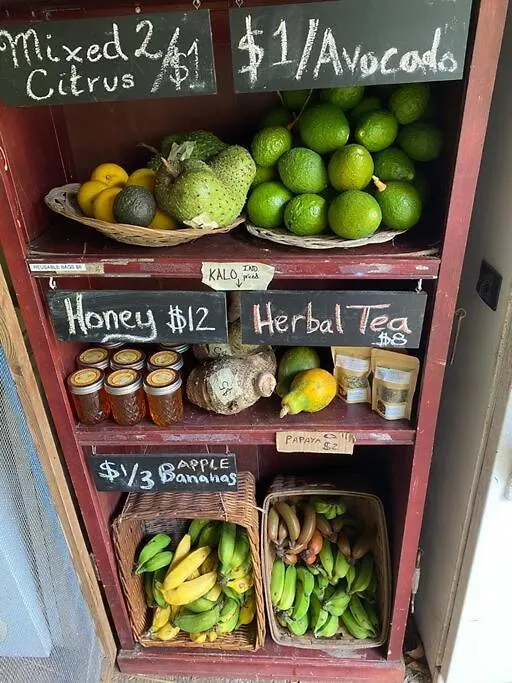 Mixed 2/$1
Citrus
$1/Avocado
REUSABLE BAGS $8
KALO IND. priced
Honey $12
Herbal Tea
$8
$5
PAPAYA $2
$1/3 APPLE
Bananas